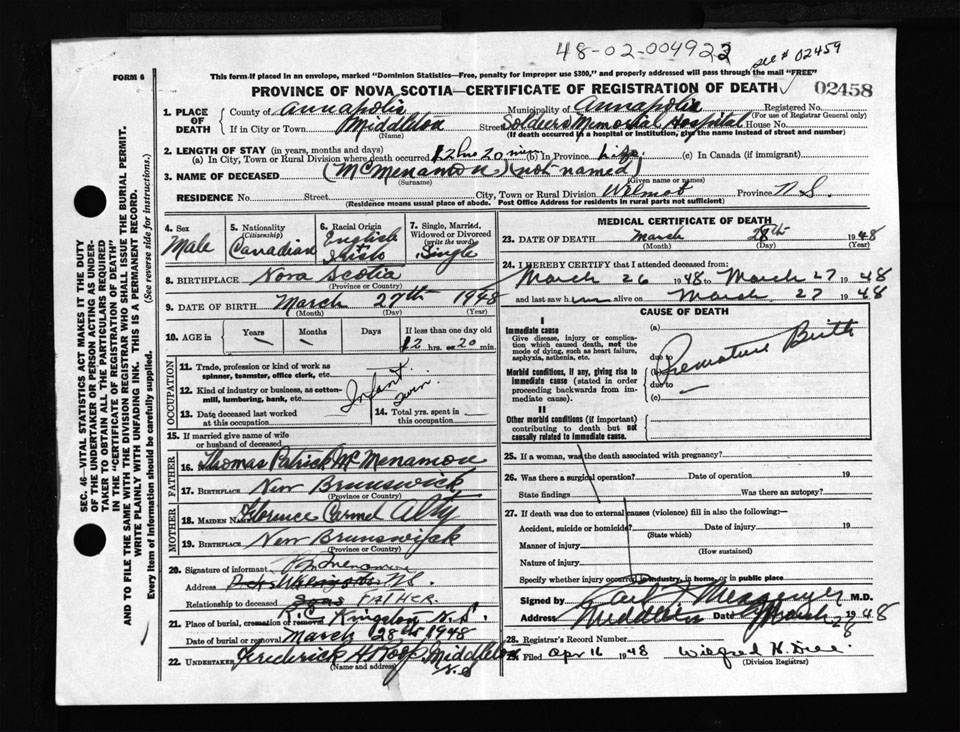 48-02-004922
see # 02459
FORM 6
This form—if placed in an envelope, marked "Dominion Statistics—Free, penalty for improper use $300," and properly addressed will pass through the mail "FREE"
PROVINCE OF NOVA SCOTIA—CERTIFICATE OF REGISTRATION OF DEATH
02458
1. PLACE OF DEATH
County of Annapolis Municipality of Annapolis Registered No.
(For use of Registrar General only)
If in City or Town Middleton Street Soldiers Memorial Hospital House No.
(Name) (If death occurred in a hospital or institution, give the name instead of street and number)
2. LENGTH OF STAY (in years, months and days)
(a) In City, Town or Rural Division where death occurred 12 hrs 20 min (b) In Province life (c) In Canada (if immigrant)
3. NAME OF DECEASED (McMenamon) (not named)
(Surname) (Given name or names)
RESIDENCE No. Street City, Town or Rural Division Wilmot Province N.S.
(Residence means usual place of abode. Post Office Address for residents in rural parts not sufficient)
4. Sex
Male
5. Nationality
(Citizenship)
Canadian
6. Racial Origin
English + Irish
7. Single, Married, Widowed or Divorced
(write the word)
Single
8. BIRTHPLACE Nova Scotia
(Province or Country)
9. DATE OF BIRTH March 27th 1948
(Month) (Day) (Year)
10. AGE in Years Months Days If less than one day old
12 hrs. or 20 min.
OCCUPATION
11. Trade, profession or kind of work as spinner, teamster, office clerk, etc.
12. Kind of industry or business, as cotton-mill, lumbering, bank, etc.
Infant
13. Date deceased last worked at this occupation
14. Total yrs. spent in this occupation
15. If married give name of wife or husband of deceased
FATHER
16. Thomas Patrick McMenamon
17. BIRTHPLACE New Brunswick
(Province or Country)
MOTHER
18. MAIDEN NAME Florence Carmel
19. BIRTHPLACE New Brunswick
(Province or Country)
20. Signature of informant
Address N.S.
Relationship to deceased Sons FATHER.
21. Place of burial, cremation or removal R.C. Kingston N.S.
Date of burial or removal March 28th 1948
22. UNDERTAKER Frederick H Roop, Middleton
(Name and address) N.S
MEDICAL CERTIFICATE OF DEATH
23. DATE OF DEATH March 28th 1948
(Month) (Day) (Year)
24. I HEREBY CERTIFY that I attended deceased from:
March 26 1948 to March 27 1948
and last saw h im alive on March 27 1948
CAUSE OF DEATH
I
Immediate cause
Give disease, injury or complication which caused death, not the mode of dying, such as heart failure, asphyxia, asthenia, etc.
Morbid conditions, if any, giving rise to immediate cause (stated in order proceeding backwards from immediate cause).
II
Other morbid conditions (if important) contributing to death but not causally related to immediate cause.
(a)
due to
Premature Birth
(b)
due to
(c)
25. If a woman, was the death associated with pregnancy?
26. Was there a surgical operation? Date of operation 19
State findings Was there an autopsy?
27. If death was due to external causes (violence) fill in also the following:—
Accident, suicide or homicide? Date of injury 19
(State which)
Manner of injury
(How sustained)
Nature of injury
Specify whether injury occurred in industry, in home, or in public place
Signed by M.D.
Address Middleton Date March 28 1948
28. Registrar's Record Number
29. Filed Apr 16 1948
(Division Registrar)
SEC. 46—VITAL STATISTICS ACT MAKES IT THE DUTY
OF THE UNDERTAKER OR PERSON ACTING AS UNDER-
TAKER TO OBTAIN ALL THE PARTICULARS REQUIRED
IN THE "CERTIFICATE OF REGISTRATION OF DEATH"
AND TO FILE THE SAME WITH THE DIVISION REGISTRAR WHO SHALL ISSUE THE BURIAL PERMIT.
WRITE PLAINLY WITH UNFADING INK. THIS IS A PERMANENT RECORD.
Every item of information should be carefully supplied. (See reverse side for instructions.)